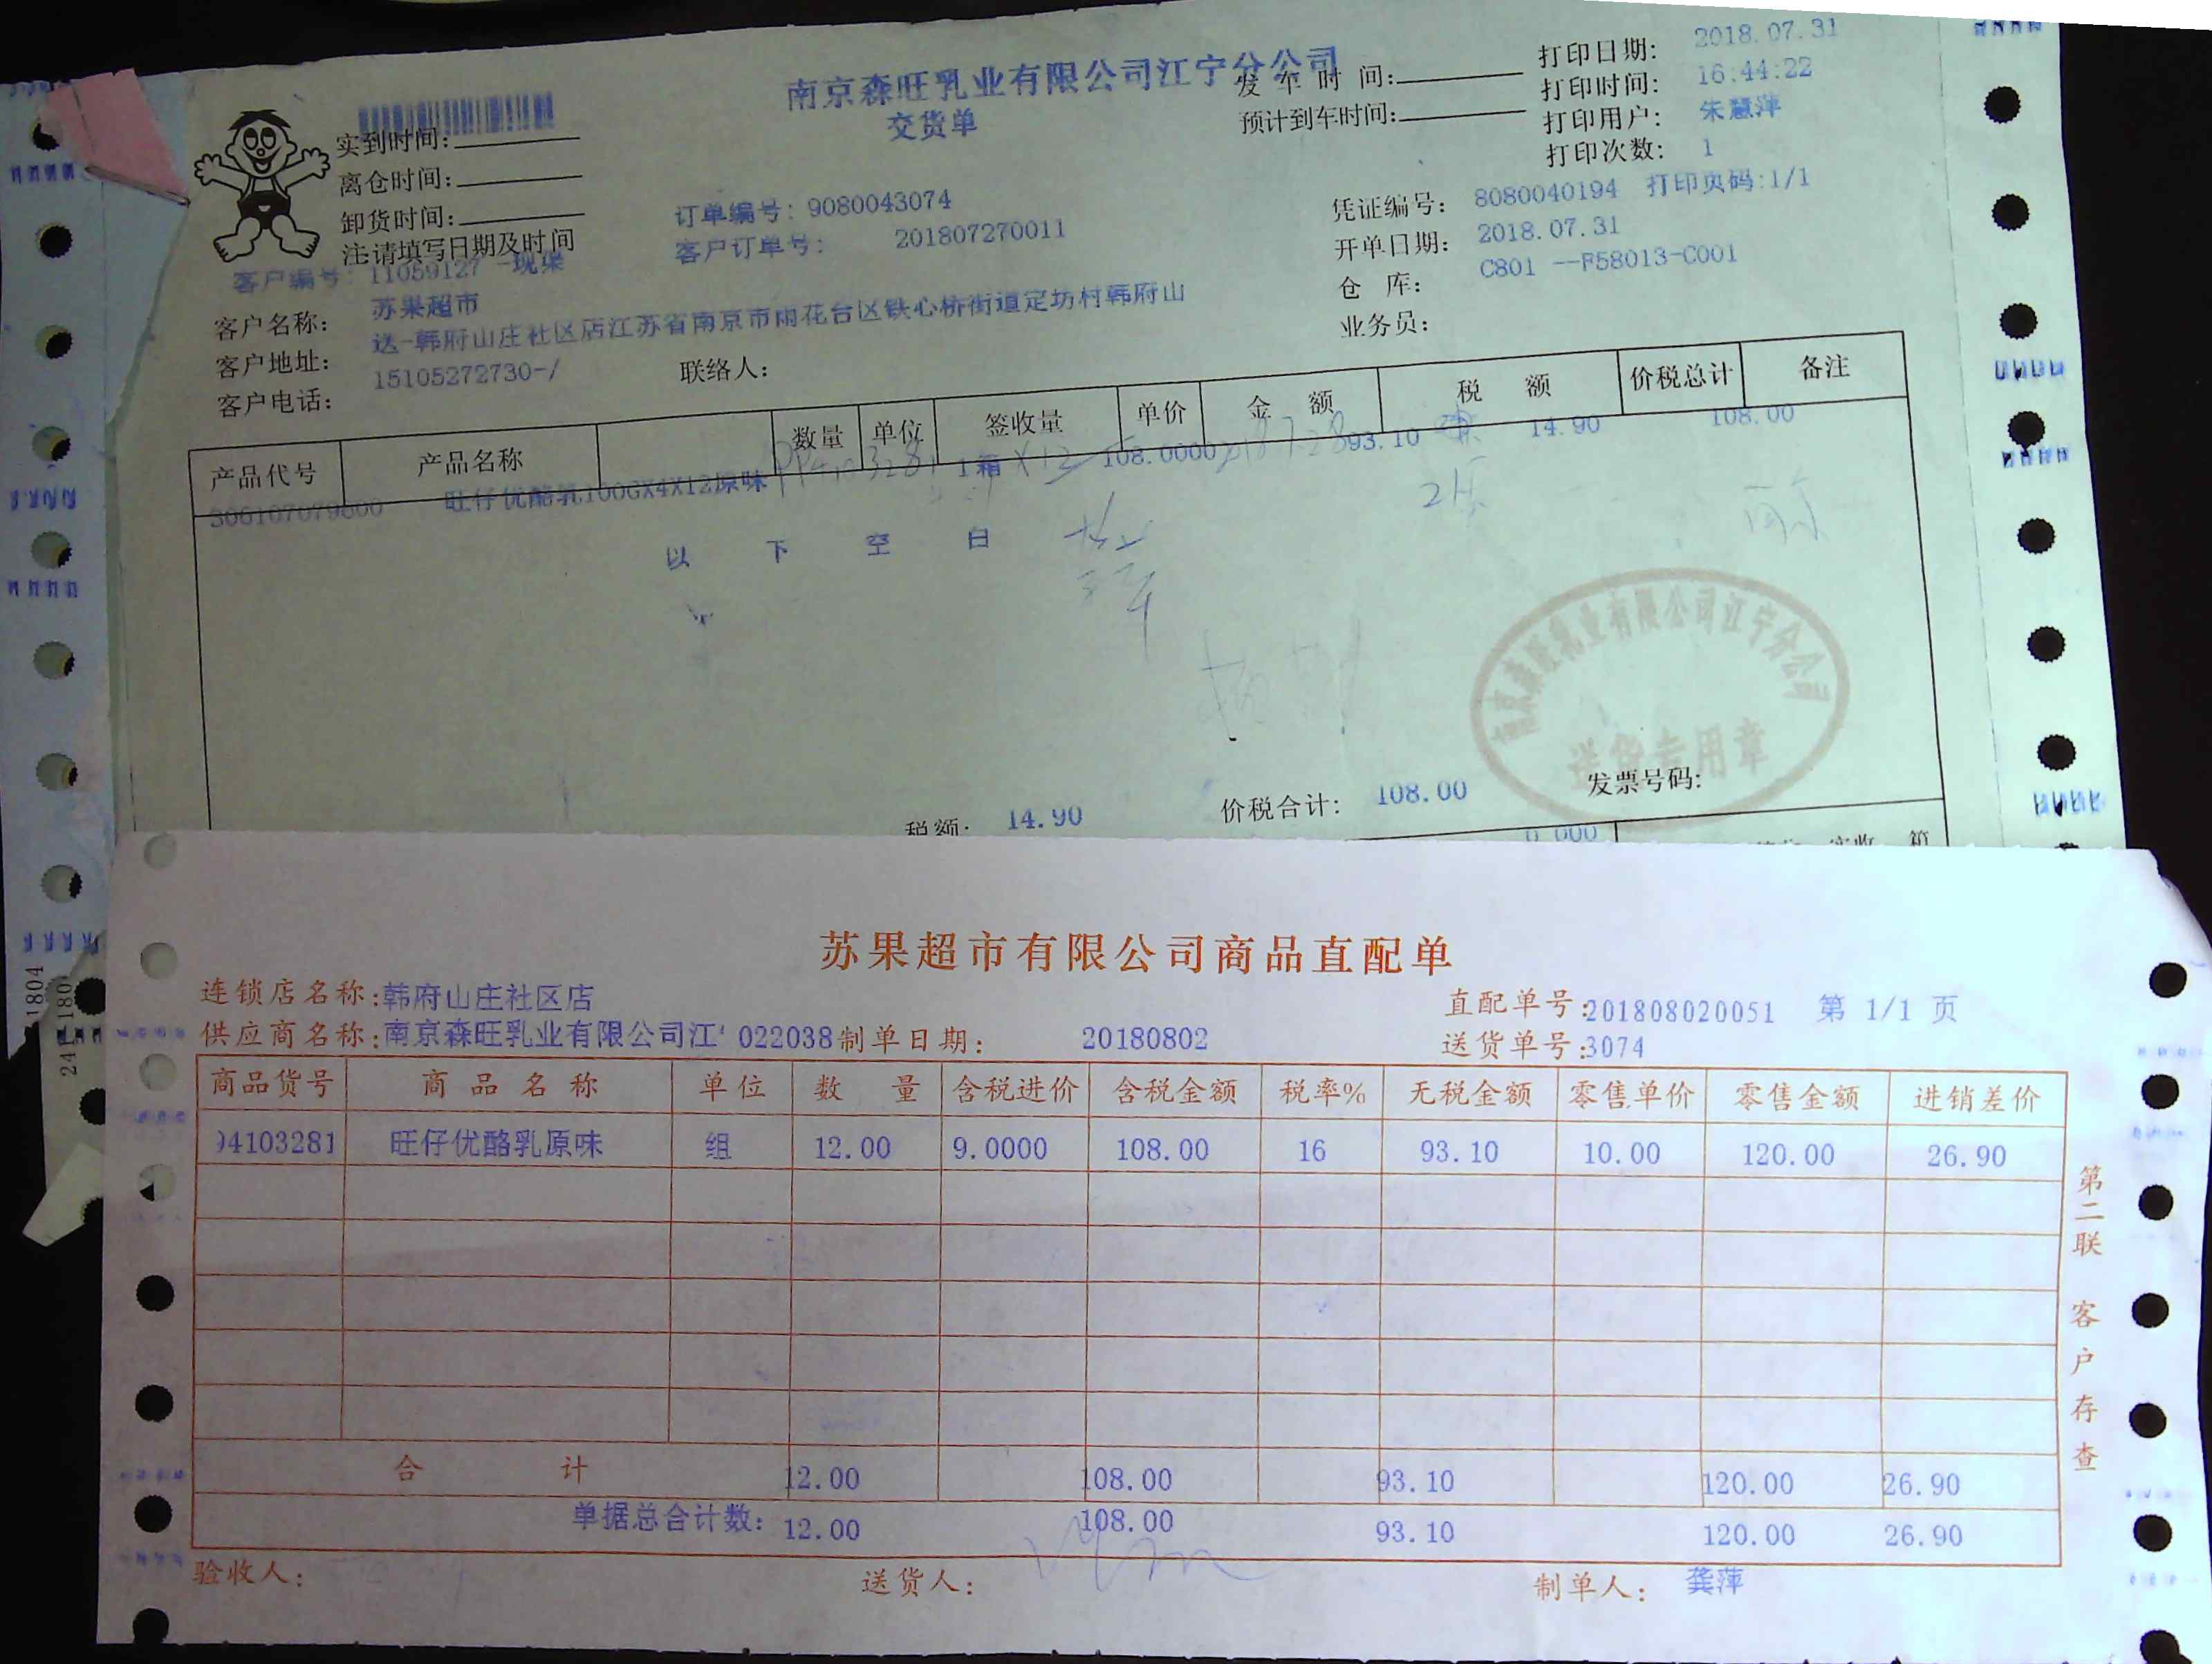 南京森旺乳业有限公司江宁分公司
交货单
发车时间:
预计到车时间:
打印日期: 2018.07.31
打印时间: 16:44:22
打印用户: 朱慧萍
打印次数: 1
实到时间:
离仓时间:
卸货时间:
注:请填写日期及时间
订单编号: 9080043074
客户订单号: 201807270011
凭证编号: 8080040194 打印页码:1/1
开单日期: 2018.07.31
仓 库: C801 --F58013-C001
业务员:
客户编号: 11059127 -现渠
客户名称: 苏果超市
客户地址: 送-韩府山庄社区店江苏省南京市雨花台区铁心桥街道定坊村韩府山
客户电话: 15105272730-/ 联络人:
产品代号 产品名称 数量 单位 签收量 单价 金 额 税 额 价税总计 备注
306107079800 旺仔优酪乳100GX4X12原味 1箱 X12 108.0000 93.10 14.90 108.00
以 下 空 白
南京森旺乳业有限公司江宁分公司
送货专用章
税额: 14.90 价税合计: 108.00 发票号码:
0.000 实收 箱
苏果超市有限公司商品直配单
连锁店名称:韩府山庄社区店 直配单号:201808020051 第 1/1 页
供应商名称:南京森旺乳业有限公司江' 022038 制单日期: 20180802 送货单号:3074
商品货号 商品名称 单位 数 量 含税进价 含税金额 税率% 无税金额 零售单价 零售金额 进销差价
94103281 旺仔优酪乳原味 组 12.00 9.0000 108.00 16 93.10 10.00 120.00 26.90
合 计 12.00 108.00 93.10 120.00 26.90
单据总合计数: 12.00 108.00 93.10 120.00 26.90
验收人: 送货人: 制单人: 龚萍
第二联 客户存查